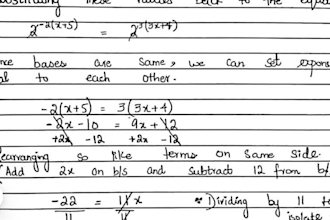 these values back to the
2^-2(x+5) = 2^3(3x+4)
bases are same, we can set
to each other.
-2(x+5) = 3(3x+4)
-2x -10 = 9x + 12
+2x -12 +2x -12
earranging so like terms on same side.
Add 2x on b/s and subtract 12 from b/
-22 = 11 x * Dividing by 11 to
11 11 isolate